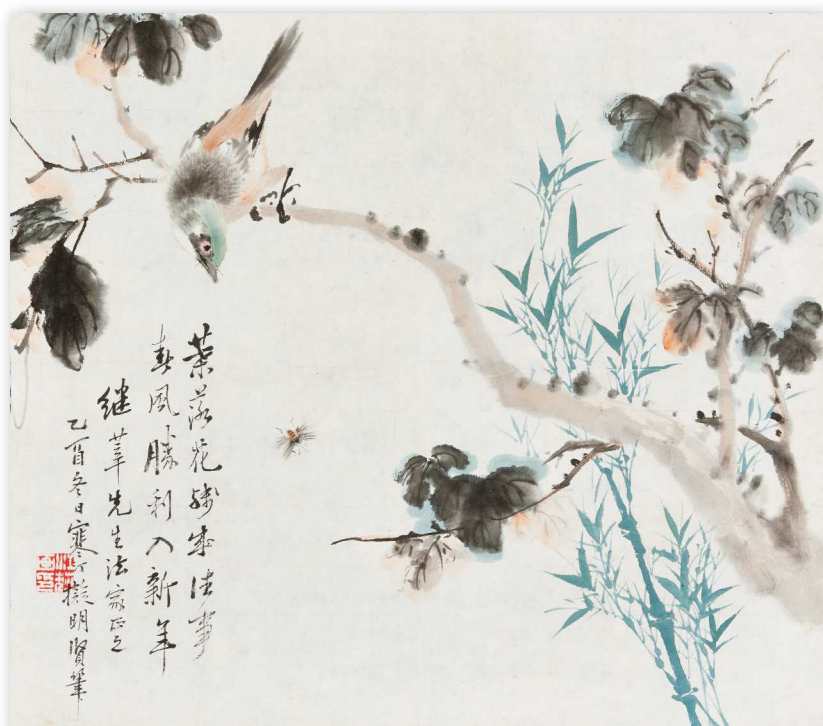 葉落花殘成往事
春風勝利入新年
继苹先生法家正之
乙酉冬日寒丁擬明賢筆